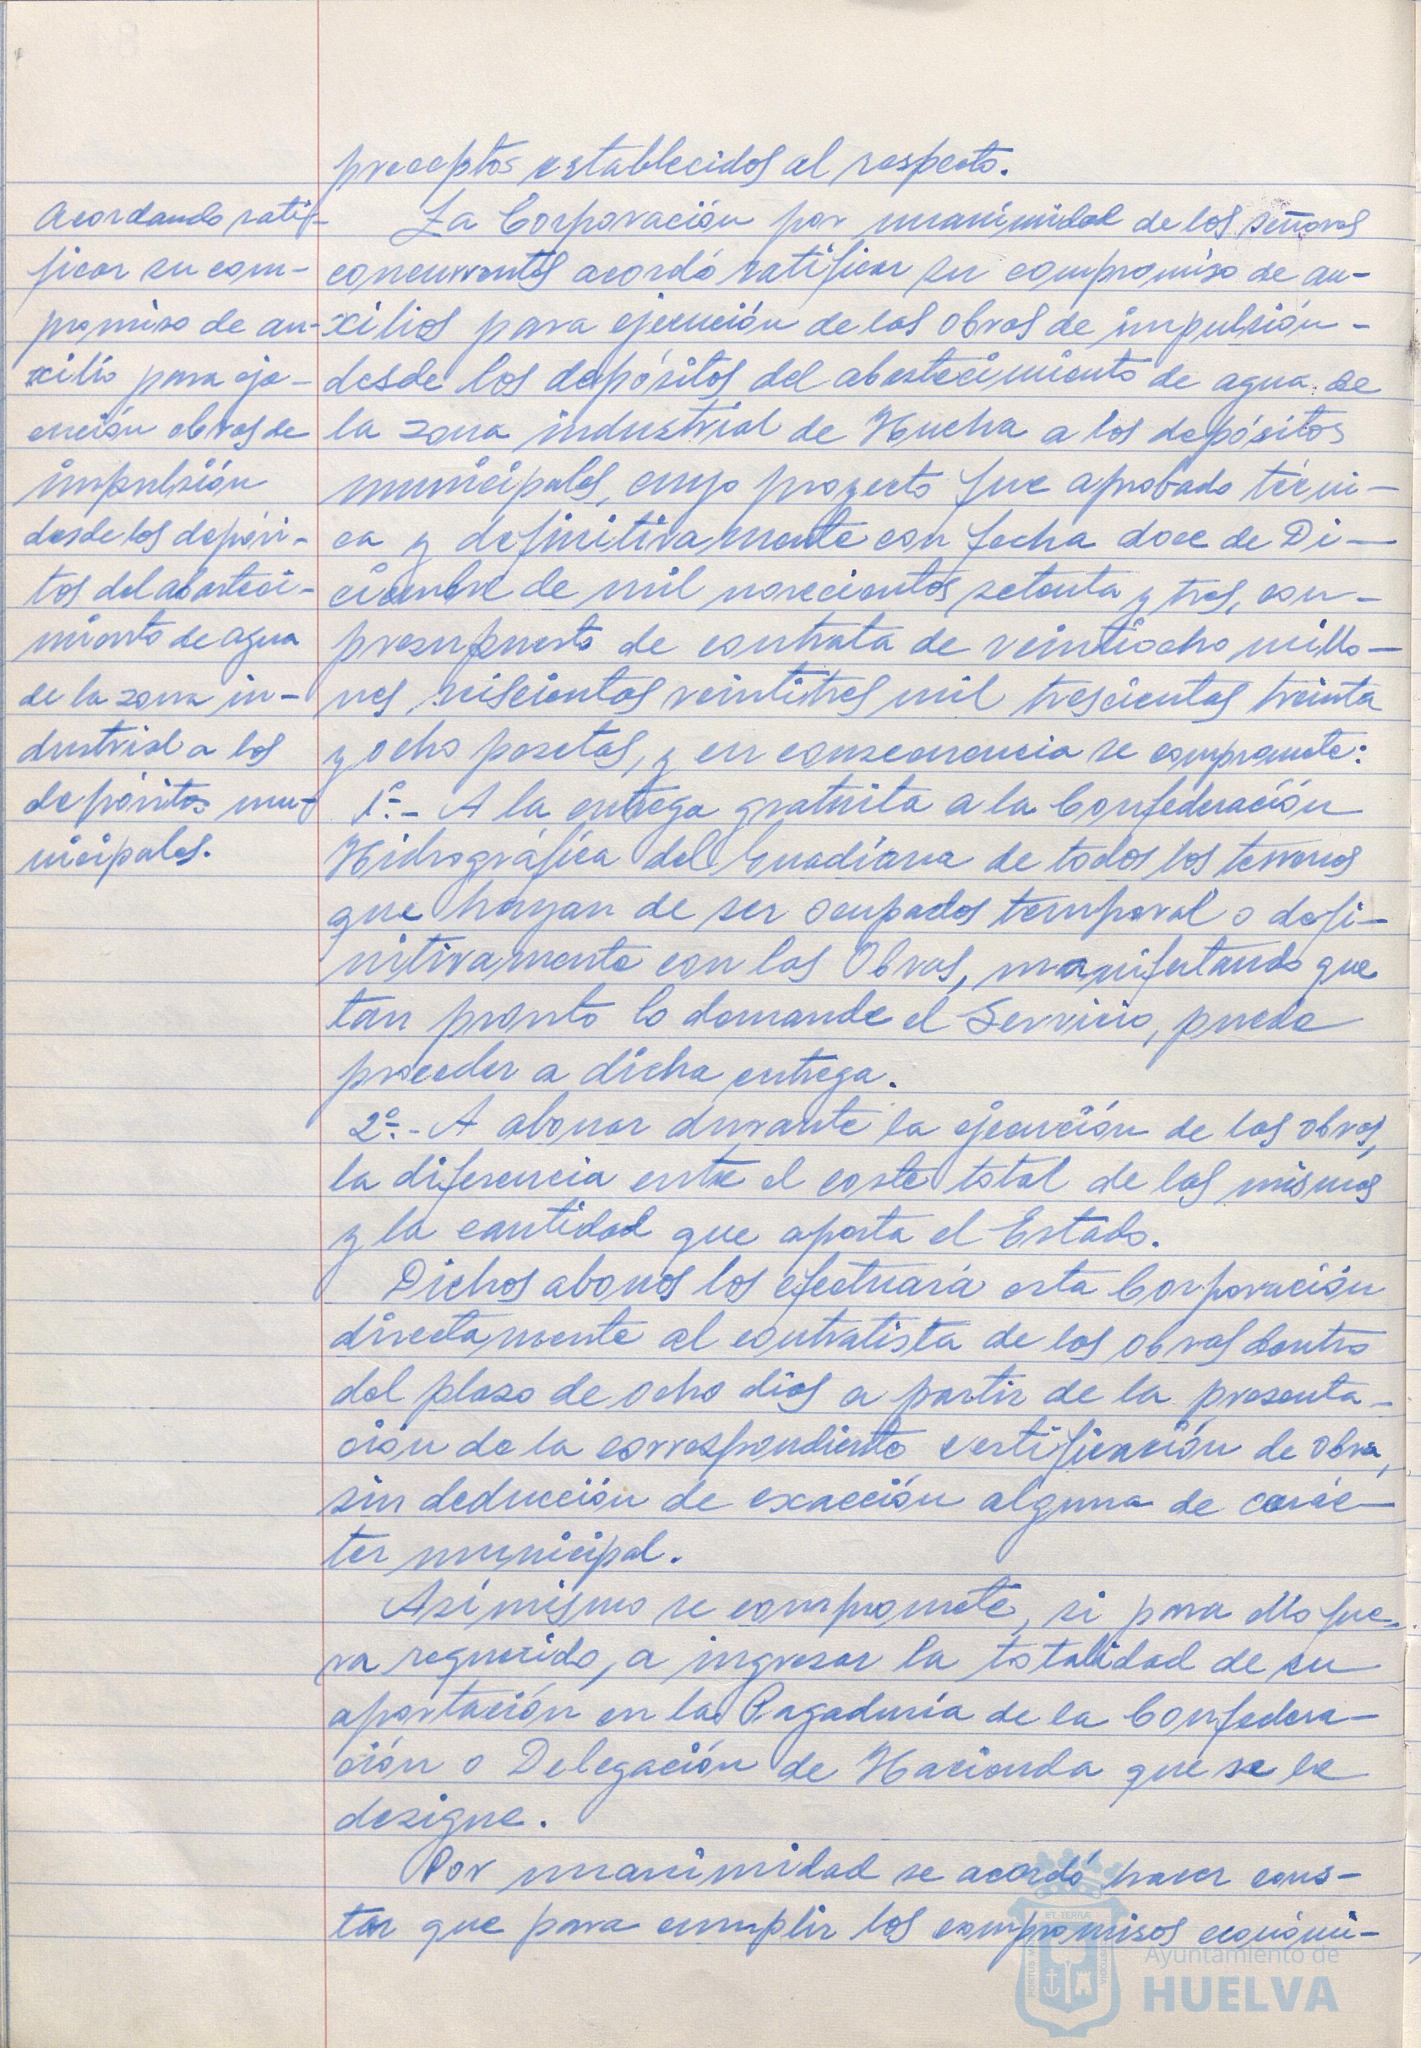 preceptos establecidos al respecto.
Acordando rati-
ficar su com-
promiso de au-
xilio para eje-
cución obras de
impulsión
desde los depósi-
tos del abasteci-
miento de agua
de la zona in-
dustrial a los
depósitos mu-
nicipales.
La Corporación por unanimidad de los señores
concurrentes acordó ratificar su compromiso de au-
xilios para ejecución de las obras de impulsión -
desde los depósitos del abastecimiento de agua de
la zona industrial de Huelva a los depósitos
municipales, cuyo proyecto fue aprobado técni-
ca y definitivamente con fecha doce de Di-
ciembre de mil novecientos setenta y tres, con -
presupuesto de contrata de veintiocho millo-
nes seiscientas veintitres mil trescientas treinta
y ocho pesetas, y en consecuencia se compromete:
1º.- A la entrega gratuita a la Confederación
Hidrográfica del Guadiana de todos los terrenos
que hayan de ser ocupados temporal o defi-
nitivamente con las Obras, manifestando que
tan pronto lo demande el Servicio, puede
proceder a dicha entrega.
2º.- A abonar durante la ejecución de las obras,
la diferencia entre el coste total de las mismas
y la cantidad que aporta el Estado.
Dichos abonos los efectuará esta Corporación
directamente al contratista de las obras dentro
del plazo de ocho días a partir de la presenta-
ción de la correspondiente certificación de obra,
sin deducción de exacción alguna de carác-
ter municipal.
Asimismo se compromete, si para ello fue-
ra requerido, a ingresar la totalidad de su
aportación en la Pagaduría de la Confedera-
ción o Delegación de Hacienda que se le
designe.
Por unanimidad se acordó hacer cons-
tar que para cumplir los compromisos económi-
Ayuntamiento de
HUELVA